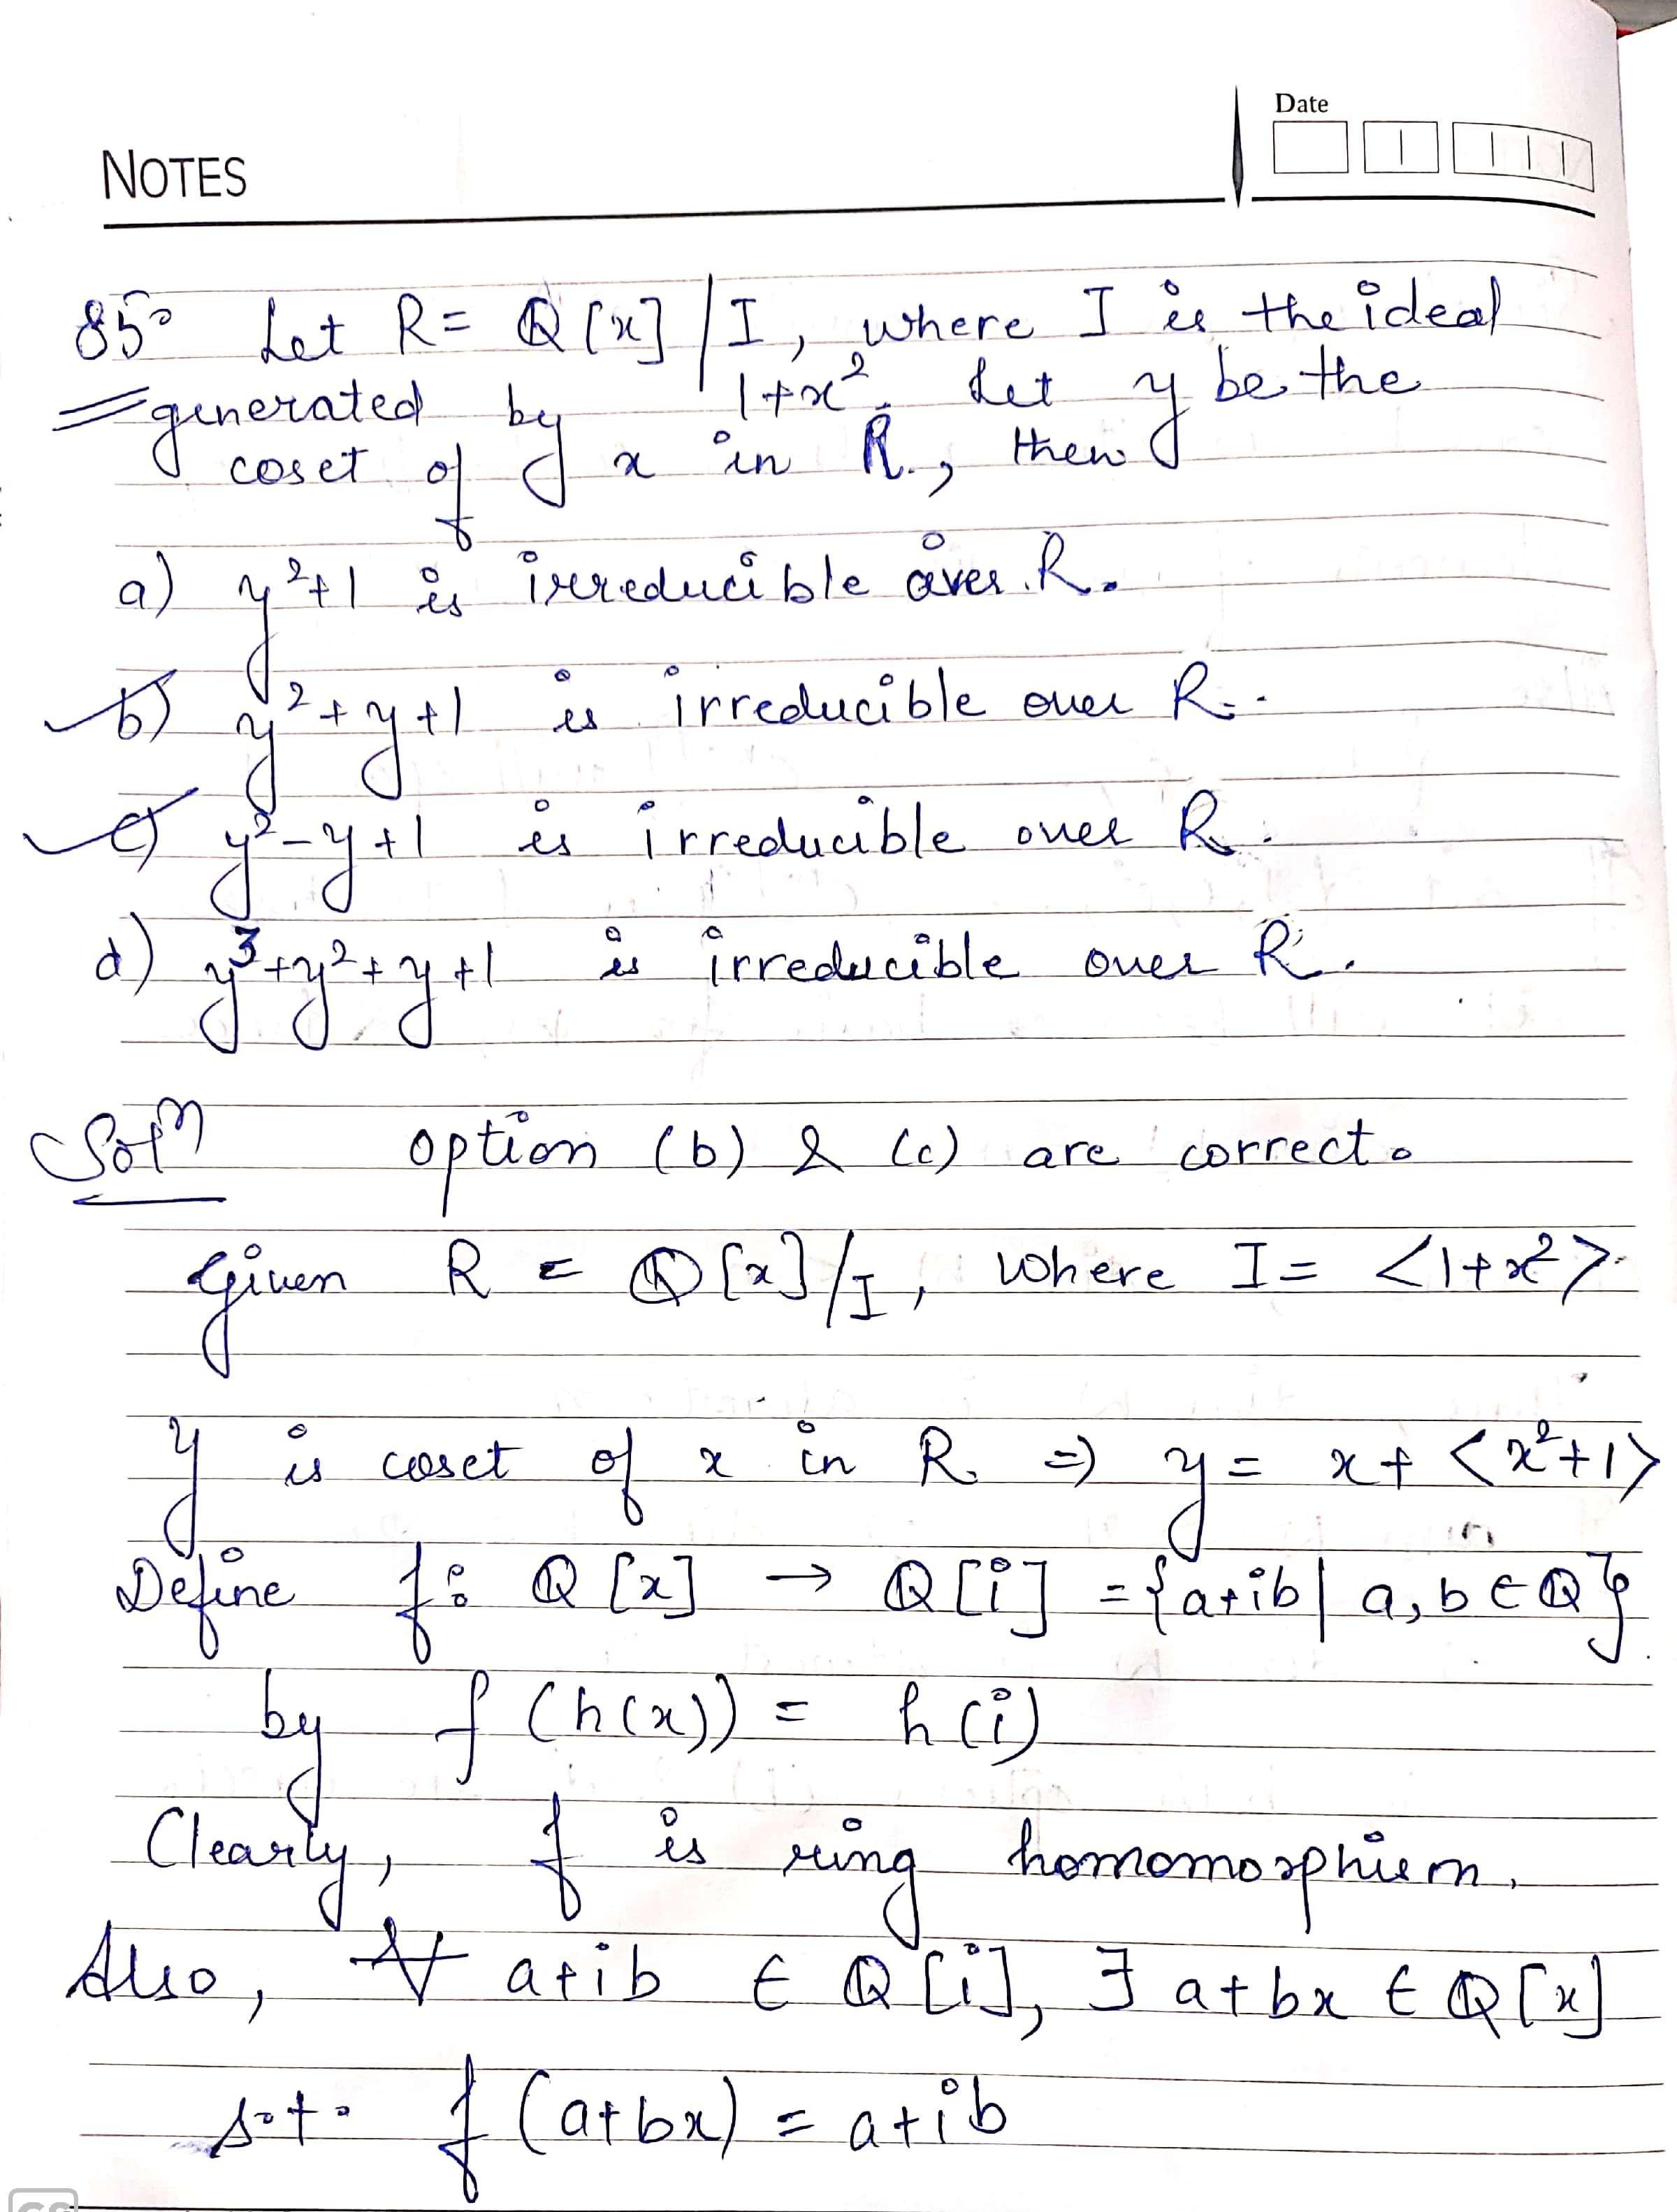 Date
NOTES
85° Let R = Q[x]/I, where I is the ideal
generated by 1+x². Let y be the
coset of x in R., then
a) y²+1 is irreducible over R.
b) y²+y+1 is irreducible over R.
c) y²-y+1 is irreducible over R.
d) y³+y²+y+1 is irreducible over R.
Solⁿ option (b) & (c) are correct.
Given R = Q[x]/I, where I = <1+x²>
y is coset of x in R ⇒ y = x+<x²+1>
Define f: Q[x] → Q[i] = {a+ib | a, b ∈ Q}
by f(h(x)) = h(i)
Clearly, f is ring homomorphism.
Also, ∀ a+ib ∈ Q[i], ∃ a+bx ∈ Q[x]
s.t. f(a+bx) = a+ib
CS